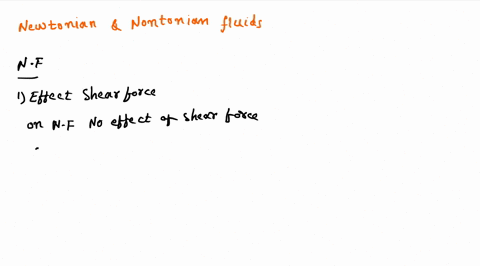 Newtonian & Nontonian fluids
N.F
1) Effect Shear force
on N.F No effect of shear force